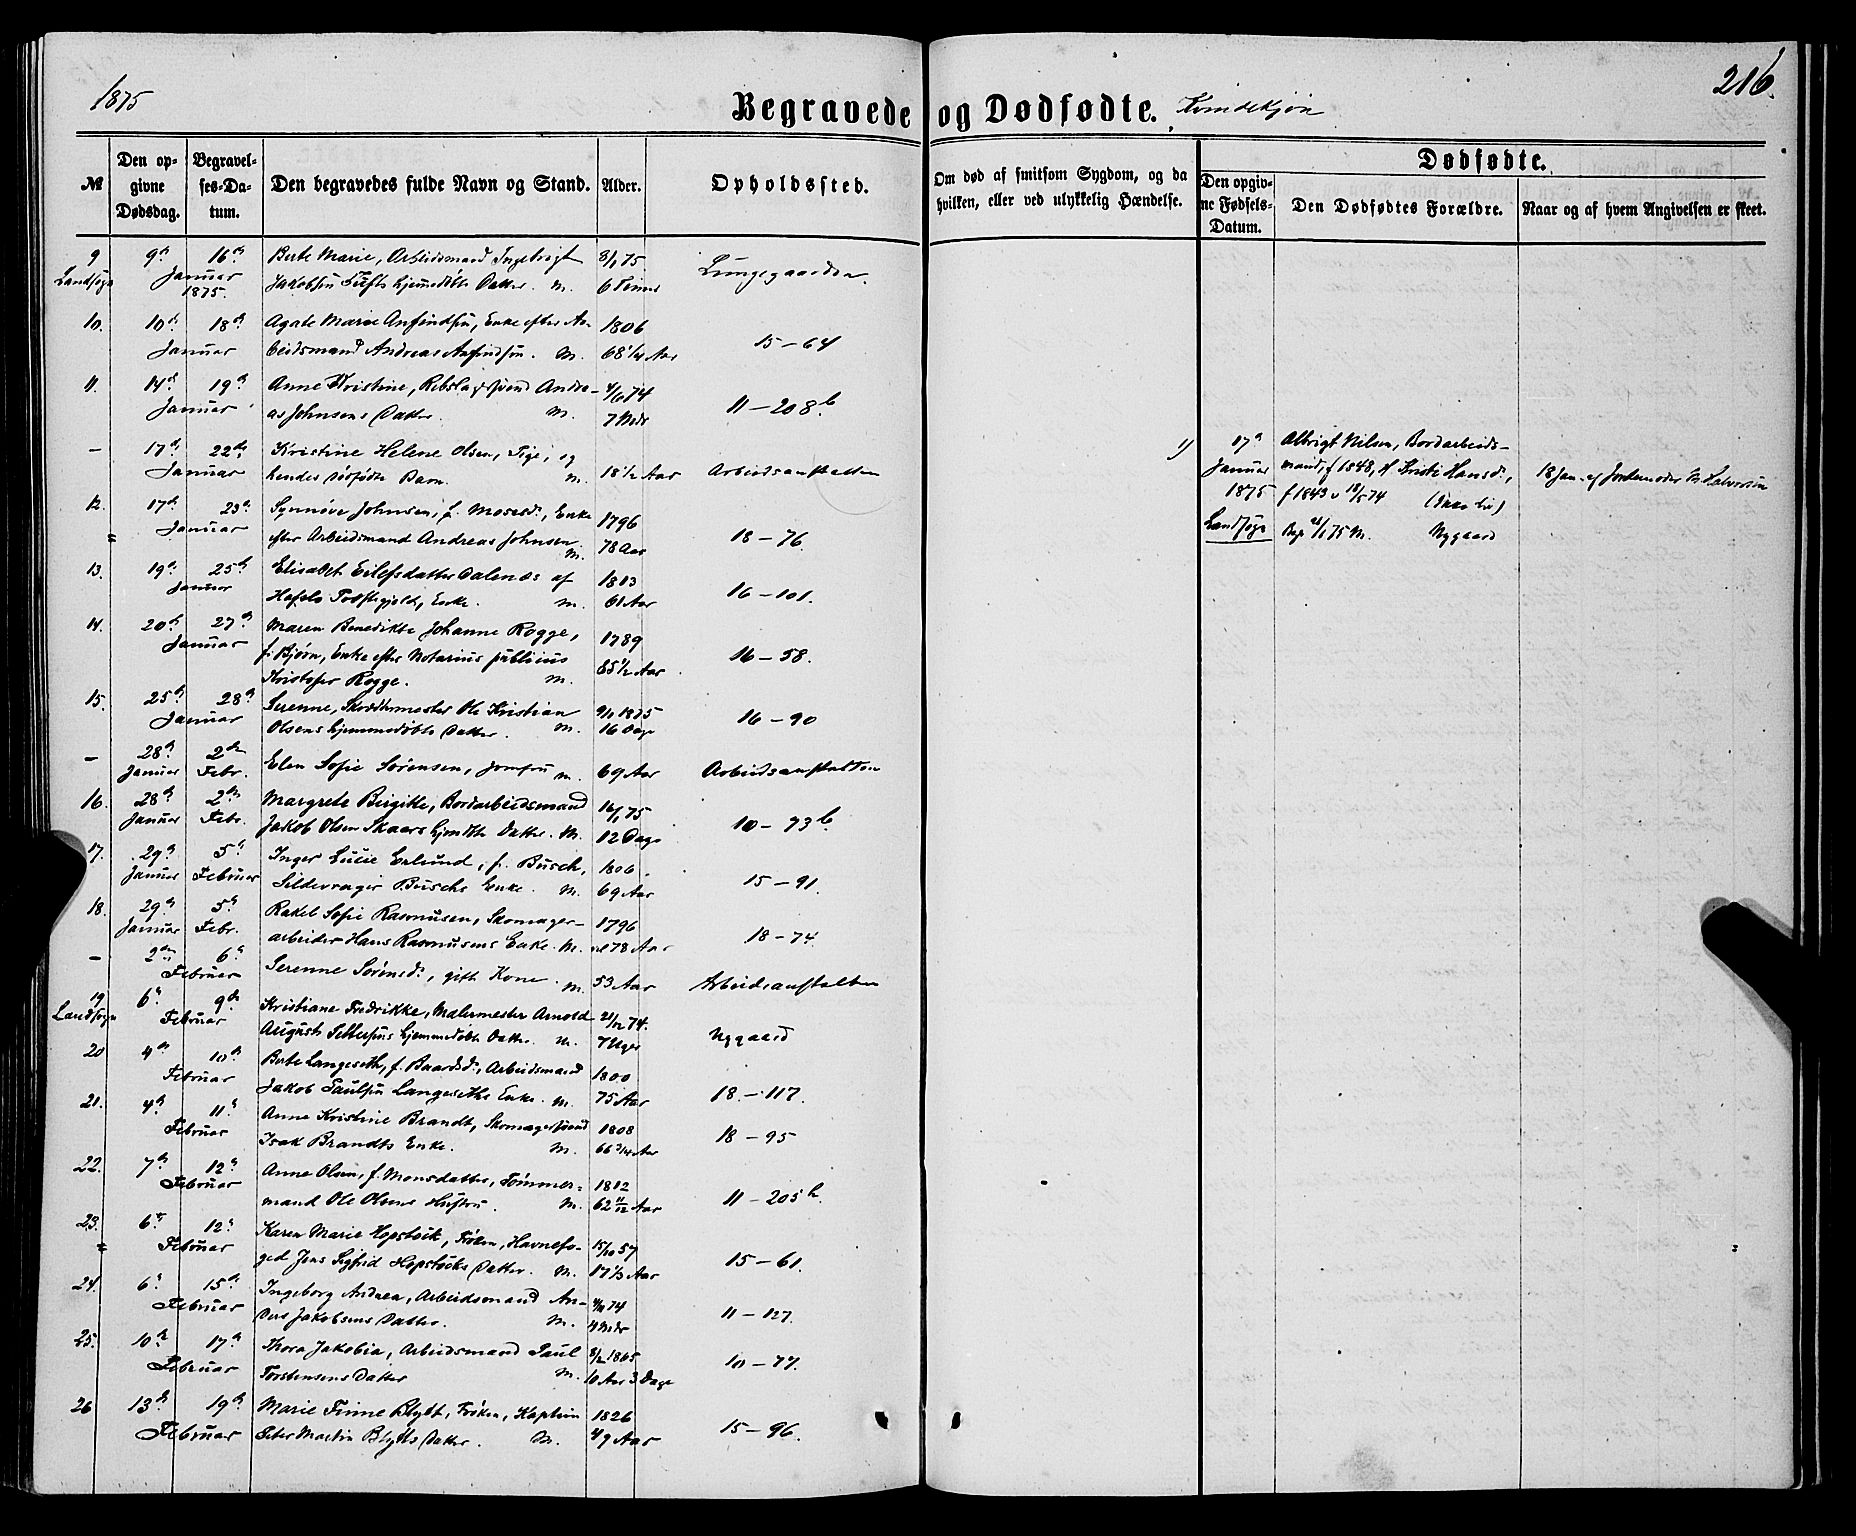 1875
Begravede og Dødfødte. Kvindekjøn
216.
№
Den opgivne Dødsdag.
Begravelses-Datum.
Den begravedes fulde Navn og Stand.
Alder.
Opholdssted.
Om død af smitsom Sygdom, og da hvilken, eller ved ulykkelig Hændelse.
Dødfødte.
Den opgivne Fødsels-Datum.
Den Dødfødtes Forældre.
Naar og af hvem Angivelsen er skeet.
9 9de 16de Berte Marie, Arbeidsmand Ingebrigt 8/1 75
Landsogn Januar 1875. Jakobsen hjemmedøbte Datter. M. 6 Timer Lungegaarden
10. 10de 18de Agate Marie Anfindsen, Enke efter Ar- 1806
Januar beidsmand Andreas Anfindsen. M. 68 1/4 Aar 15-64
11. 14de 19de Anne Kristine, Rebslagersvend Andre- 4/6 74
Januar as Johnsens Datter. M. 7 Mdr 11-208b
- 17de 22de Kristine Helene Olsen, Pige, og
Januar hendes dødfødte Barn. M. 18 1/2 Aar Arbeidsanstalten
1) 17de Albrigt Nilsen, Bordarbeids-
Januar mand, f 1848, H. Kristi Hansd., 18 Jan. af Jordemoder M. Halvorsen
1875 f 1843 v 18/5 74
Landsogn M. Nygaard
12. 17de 23de Synnøve Johnsen, f. Mosesd., Enke 1796
Januar efter Arbeidsmand Andreas Johnsen M. 78 Aar 18-76
13. 19de 25de Elisabet Eilefsdatter Dalenes af 1813
Januar Enke. M. 61 Aar 16-101.
14. 20de 27de Maren Benedikte Johanne Rogge, 1789
Januar f. Bjørn, Enke efter Notarius publicus 85 1/2 Aar 16-58.
Kristofer Rogge. M.
15. 25de 28de Serenne, Skræddermester Ole Kristian 9/1 1875
Januar Olsens hjemmedøbte Datter. M. 16 Dage 16-90
- 28de 2den
Januar Febr. Elen Sofie Sørensen, Jomfru M. 69 Aar Arbeidsanstalten
16. 28de 2den Margrete Birgitte, Bordarbeidsmand 16/1 75
Januar Febr. Jakob Olsen Skaars hjemdbte Datter. M. 12 Dage 10-73b
17. 29de 5te Inger Lucie Erlund, f. Busch, 1806.
Januar Februar Sildevrager Buschs Enke. M. 69 Aar 15-91.
18. 29de 5te Rakel Sofie Rasmusen, Skomager- 1796
Januar Febr. arbeider Hans Rasmusens Enke. M. 78 Aar 18-74
- 2den 6te
Februar Serenne Sørensd., gift Kone. M. 53 Aar Arbeidsanstalten
19 6te 9de Kristiane Fredrikke, Malermester Arnold 21/12 74.
Landsogn Februar August hjemmedøbte Datter. M. 7 Uger Nygaard
20 4de 10de Berte Langeseth, f. Baardsd., Arbeidsmand 1800
Februar Jakob Paulsen Langeseths Enke. M. 75 Aar 18-117.
21. 4de 11te Anne Kristine Brandt, Skomagersvend 1808
Februar Isak Brandts Enke. M. 66 3/4 Aar 18-95
22. 7de 12te Anne Olsen, f. Monsdatter, Tømmer- 1812
Februar mand Ole Olsens Hustru. M. 62 11/12 Aar 11-205b.
23. 6te 12te Karen Marie Hopstock, Frøken, Havnefo- 15/10 57
Februar ged Jens Sigfrid Hopstocks Datter. M. 17 1/3 Aar 15-61.
24. 6te 15de Ingeborg Andrea, Arbeidsmand An- 74
Februar ders Jakobsens Datter. M. 4 Mdr 11-127.
25. 10de 17de Thora Jakobia, Arbeidsmand Paul 8/2 1865
Februar Torstensens Datter M. 10 Aar 3 Dage 10-77.
26 13de 19de Marie Finne Blytt, Frøken, Kaptein 1826
Februar Peter Martin Blytts Datter. M. 49 Aar 15-96.